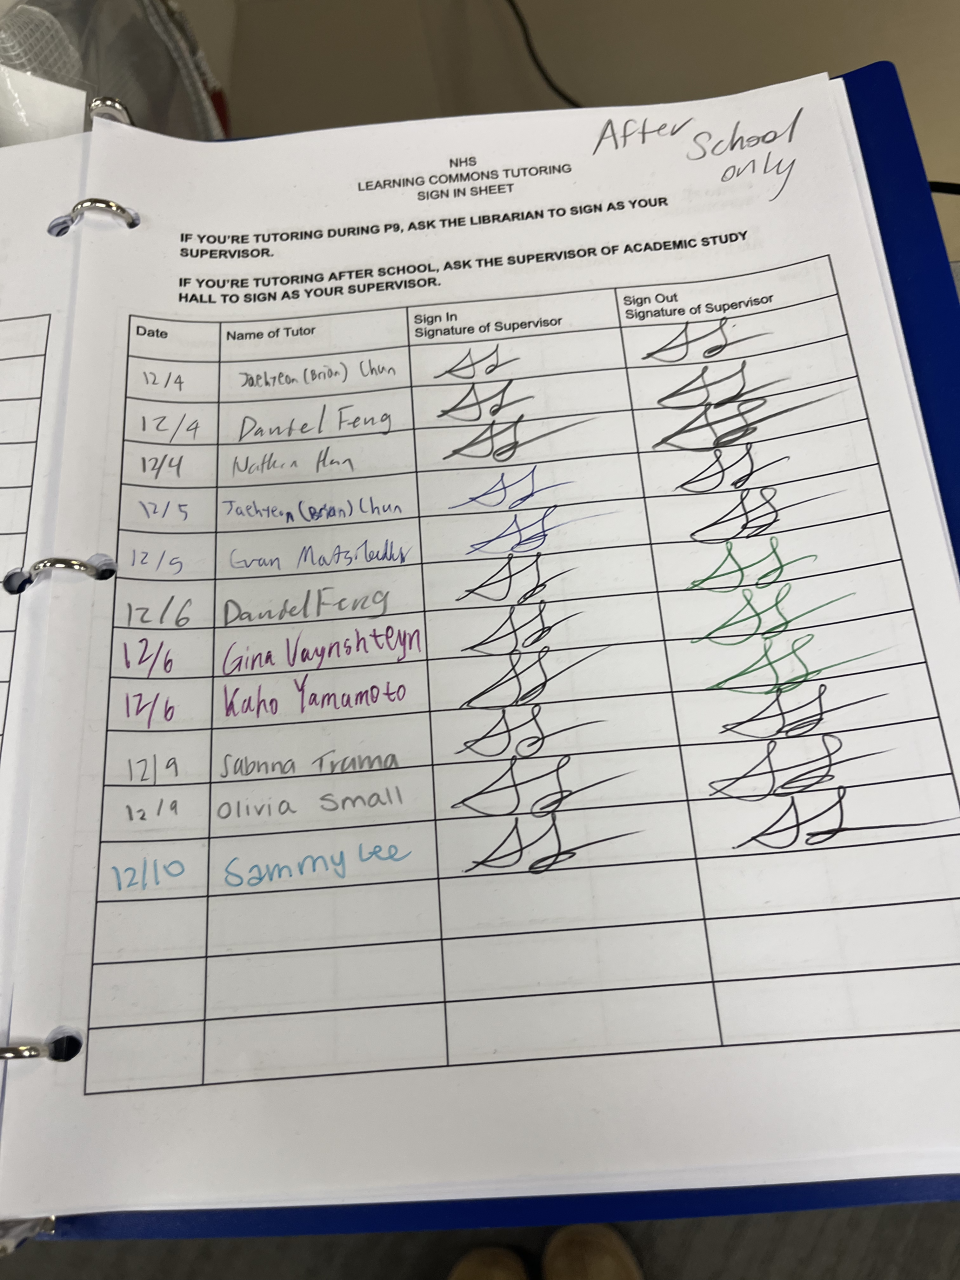 After School only
NHS
LEARNING COMMONS TUTORING
SIGN IN SHEET
IF YOU'RE TUTORING DURING P9, ASK THE LIBRARIAN TO SIGN AS YOUR
SUPERVISOR.
IF YOU'RE TUTORING AFTER SCHOOL, ASK THE SUPERVISOR OF ACADEMIC STUDY
HALL TO SIGN AS YOUR SUPERVISOR.
Date Name of Tutor Sign In Signature of Supervisor Sign Out Signature of Supervisor
12/4 Jaehyeon (Brian) Chun
12/4 Daniel Feng
12/4 Nathan Han
12/5 Jaehyeon (Brian) Chun
12/5
12/6 Daniel Feng
12/6 Gina Vaynshteyn
12/6 Kaho Yamamoto
12/9 Sabrina Trama
12/9 Olivia Small
12/10 Sammy Lee